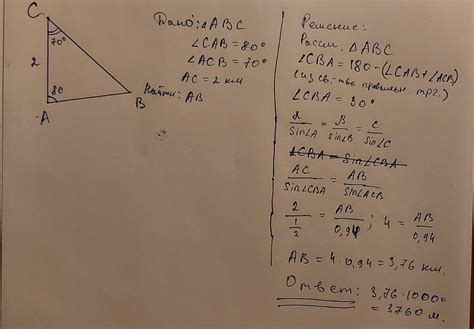 C
70°
2
80
A
B
Дано: △ABC
∠CAB = 80°
∠ACB = 70°
AC = 2 км
Найти: AB
Решение:
Рассм. △ABC
∠CBA = 180 - (∠CAB + ∠ACB)
∠CBA = 30°
sin∠A = sin∠B = sin∠C
∠CBA = sin∠CBA
AC / sin∠CBA = AB / sin∠ACB
2 / 1/2 = AB / 0,94 ; 4 = AB / 0,94
AB = 4 · 0,94 = 3,76 км.
Ответ: 3,76 · 1000 =
= 3760 м.